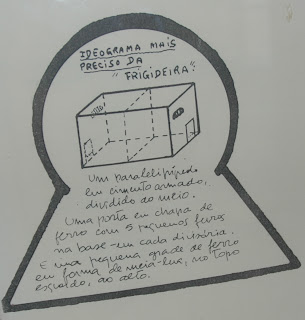 IDEOGRAMA MAIS
PRECISO DA
"FRIGIDEIRA":
Um paralelipípedo
em cimento armado,
dividido ao meio.
Uma porta em chapa de
ferro com 5 pequenos furos
na base em cada divisória.
E uma pequena grade de ferro
em forma de meia-lua, no topo
esquerdo, ao alto.